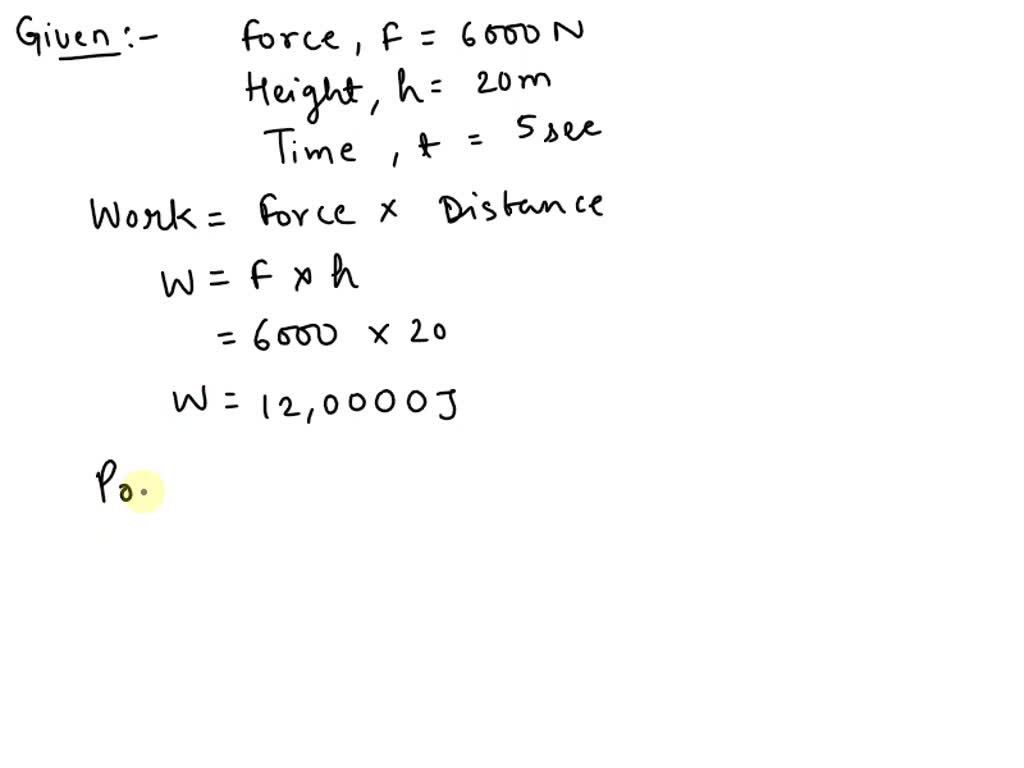 Given:- Force, F = 6000 N
Height, h = 20m
Time, t = 5 sec
Work = Force × Distance
W = F × h
= 6000 × 20
W = 12,0000J
Po.